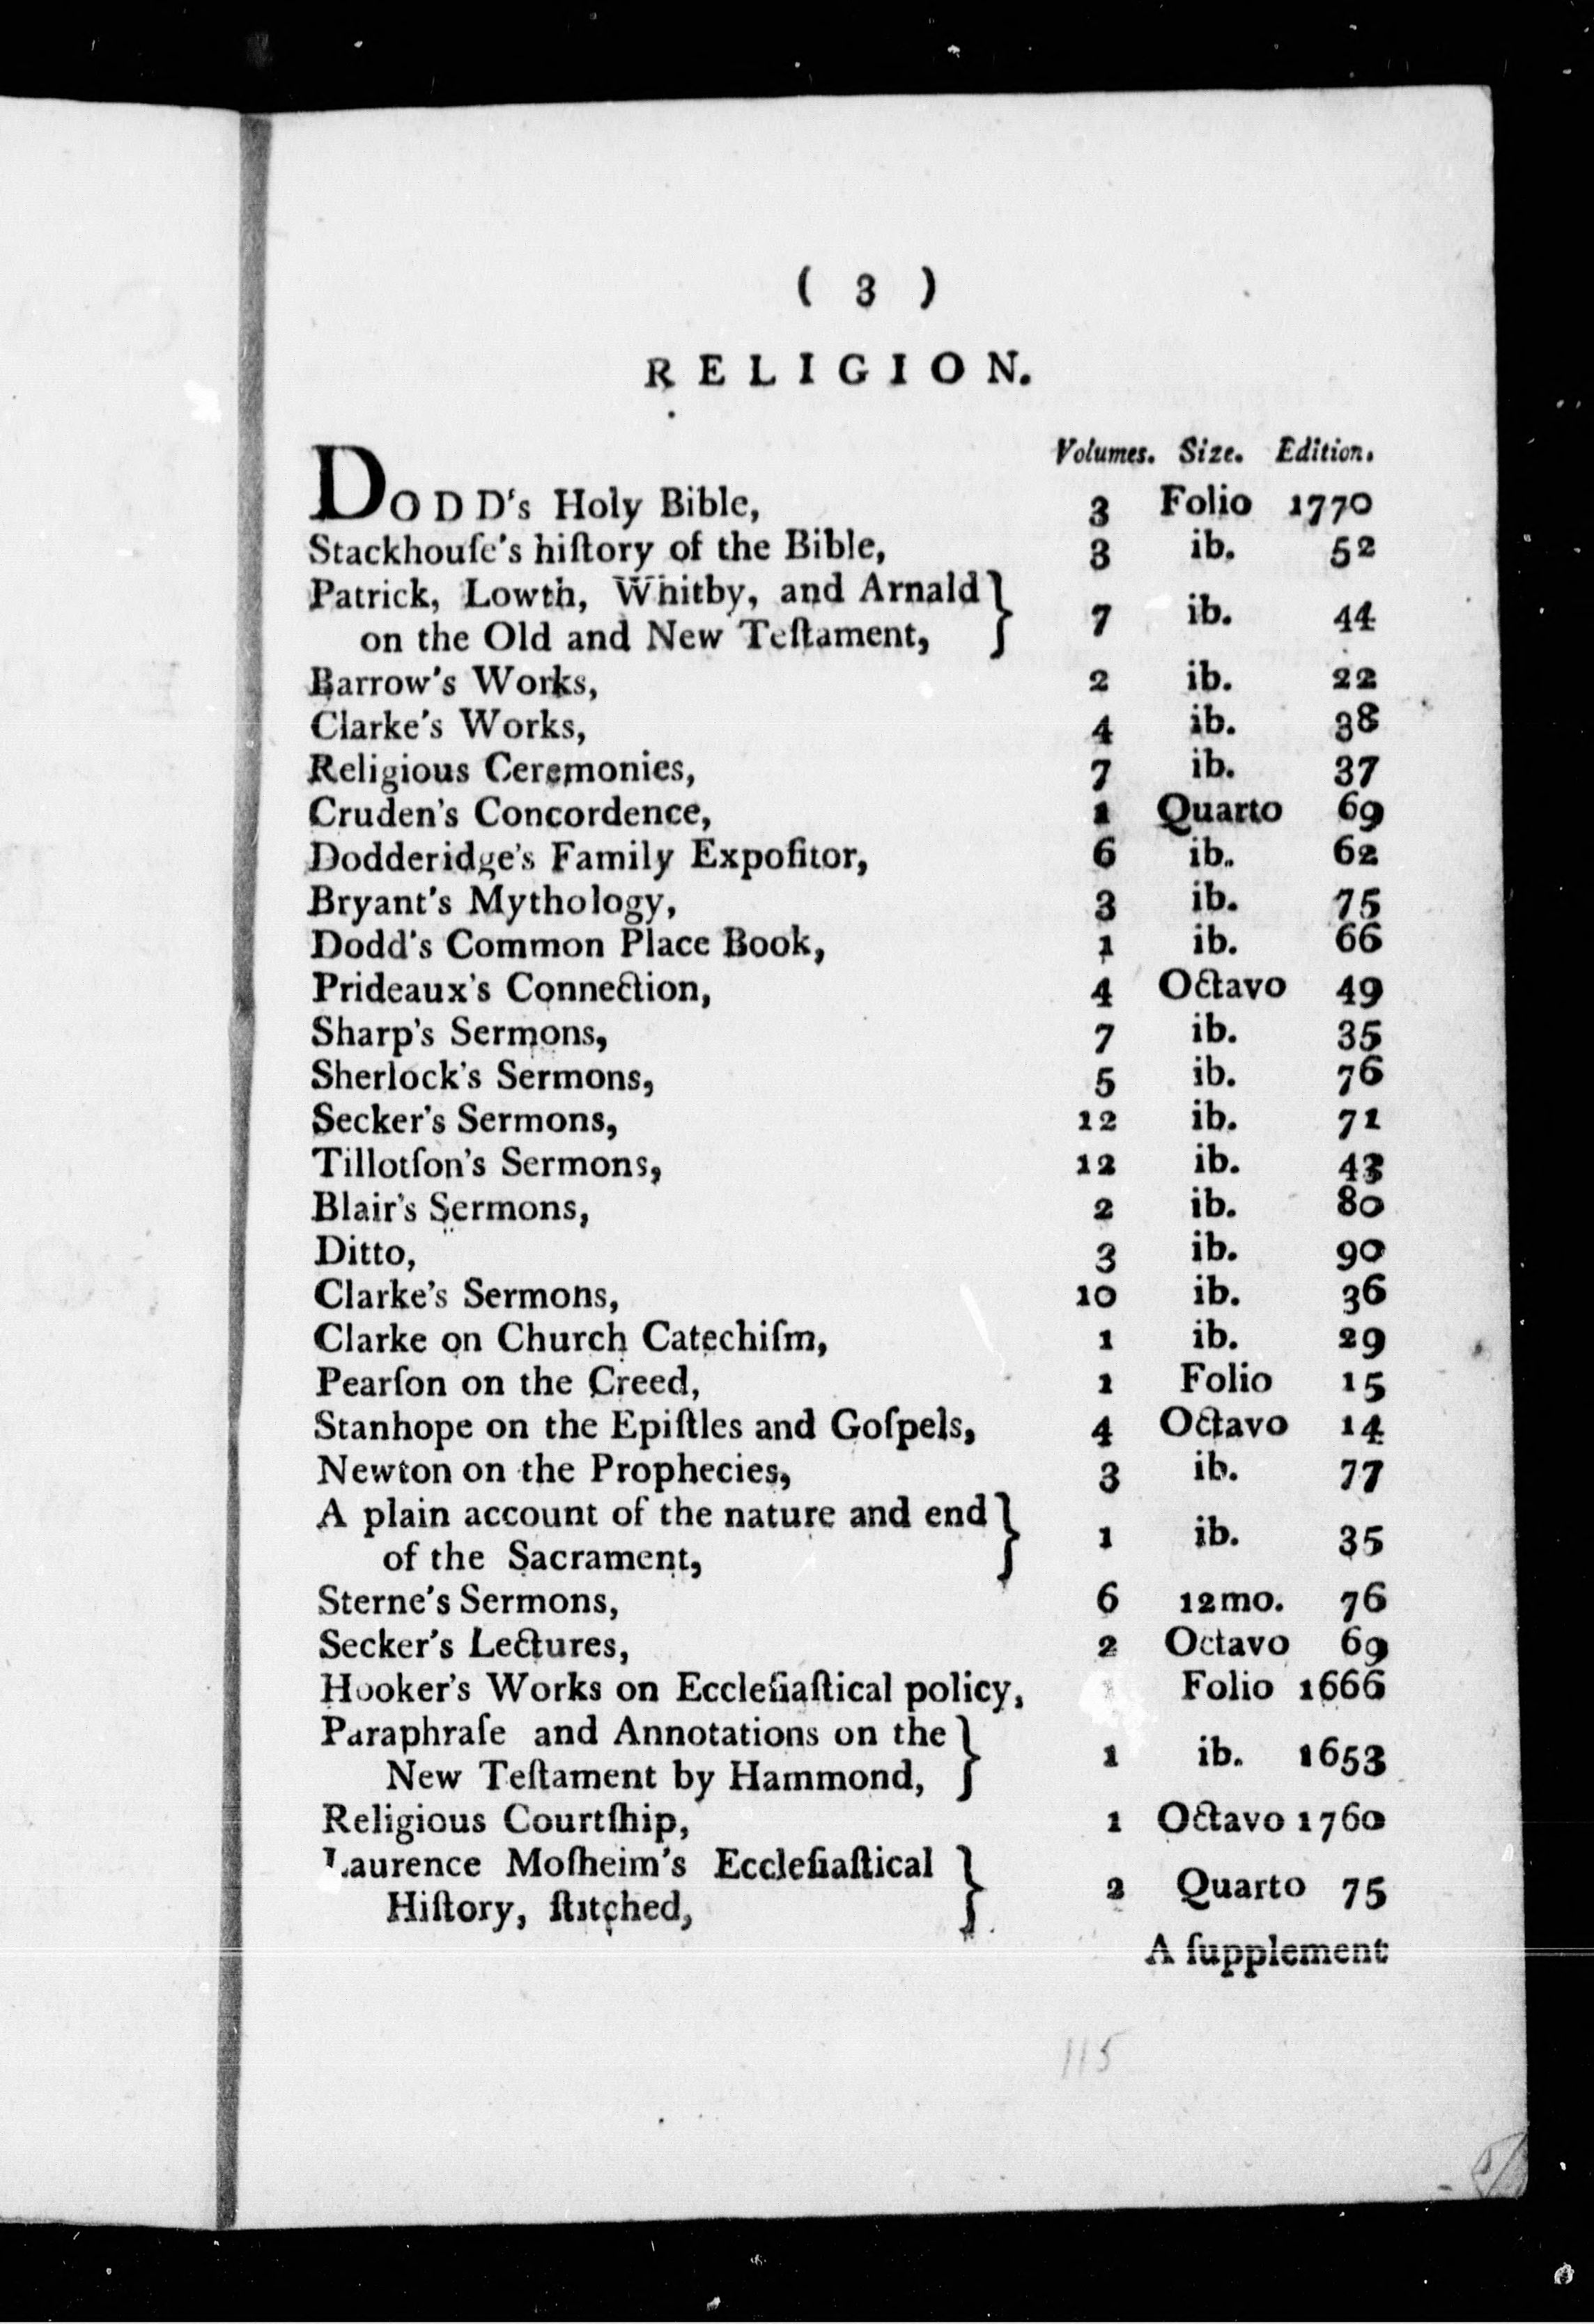 ( 3 )
RELIGION.
Volumes. Size. Edition.
DODD's Holy Bible, 3 Folio 1770
Stackhouſe's hiſtory of the Bible, 3 ib. 52
Patrick, Lowth, Whitby, and Arnald }
on the Old and New Teſtament, 7 ib. 44
Barrow's Works, 2 ib. 22
Clarke's Works, 4 ib. 38
Religious Ceremonies, 7 ib. 37
Cruden's Concordence, 1 Quarto 69
Dodderidge's Family Expoſitor, 6 ib. 62
Bryant's Mythology, 3 ib. 75
Dodd's Common Place Book, 1 ib. 66
Prideaux's Connection, 4 Octavo 49
Sharp's Sermons, 7 ib. 35
Sherlock's Sermons, 5 ib. 76
Secker's Sermons, 12 ib. 71
Tillotſon's Sermons, 12 ib. 43
Blair's Sermons, 2 ib. 80
Ditto, 3 ib. 90
Clarke's Sermons, 10 ib. 36
Clarke on Church Catechiſm, 1 ib. 29
Pearſon on the Creed, 1 Folio 15
Stanhope on the Epiſtles and Goſpels, 4 Octavo 14
Newton on the Prophecies, 3 ib. 77
A plain account of the nature and end }
of the Sacrament, 1 ib. 35
Sterne's Sermons, 6 12mo. 76
Secker's Lectures, 2 Octavo 69
Hooker's Works on Eccleſiaſtical policy, Folio 1666
Paraphraſe and Annotations on the }
New Teſtament by Hammond, 1 ib. 1653
Religious Courtſhip, 1 Octavo 1760
Laurence Moſheim's Eccleſiaſtical }
Hiſtory, ſtitched, 2 Quarto 75
A ſupplement
115